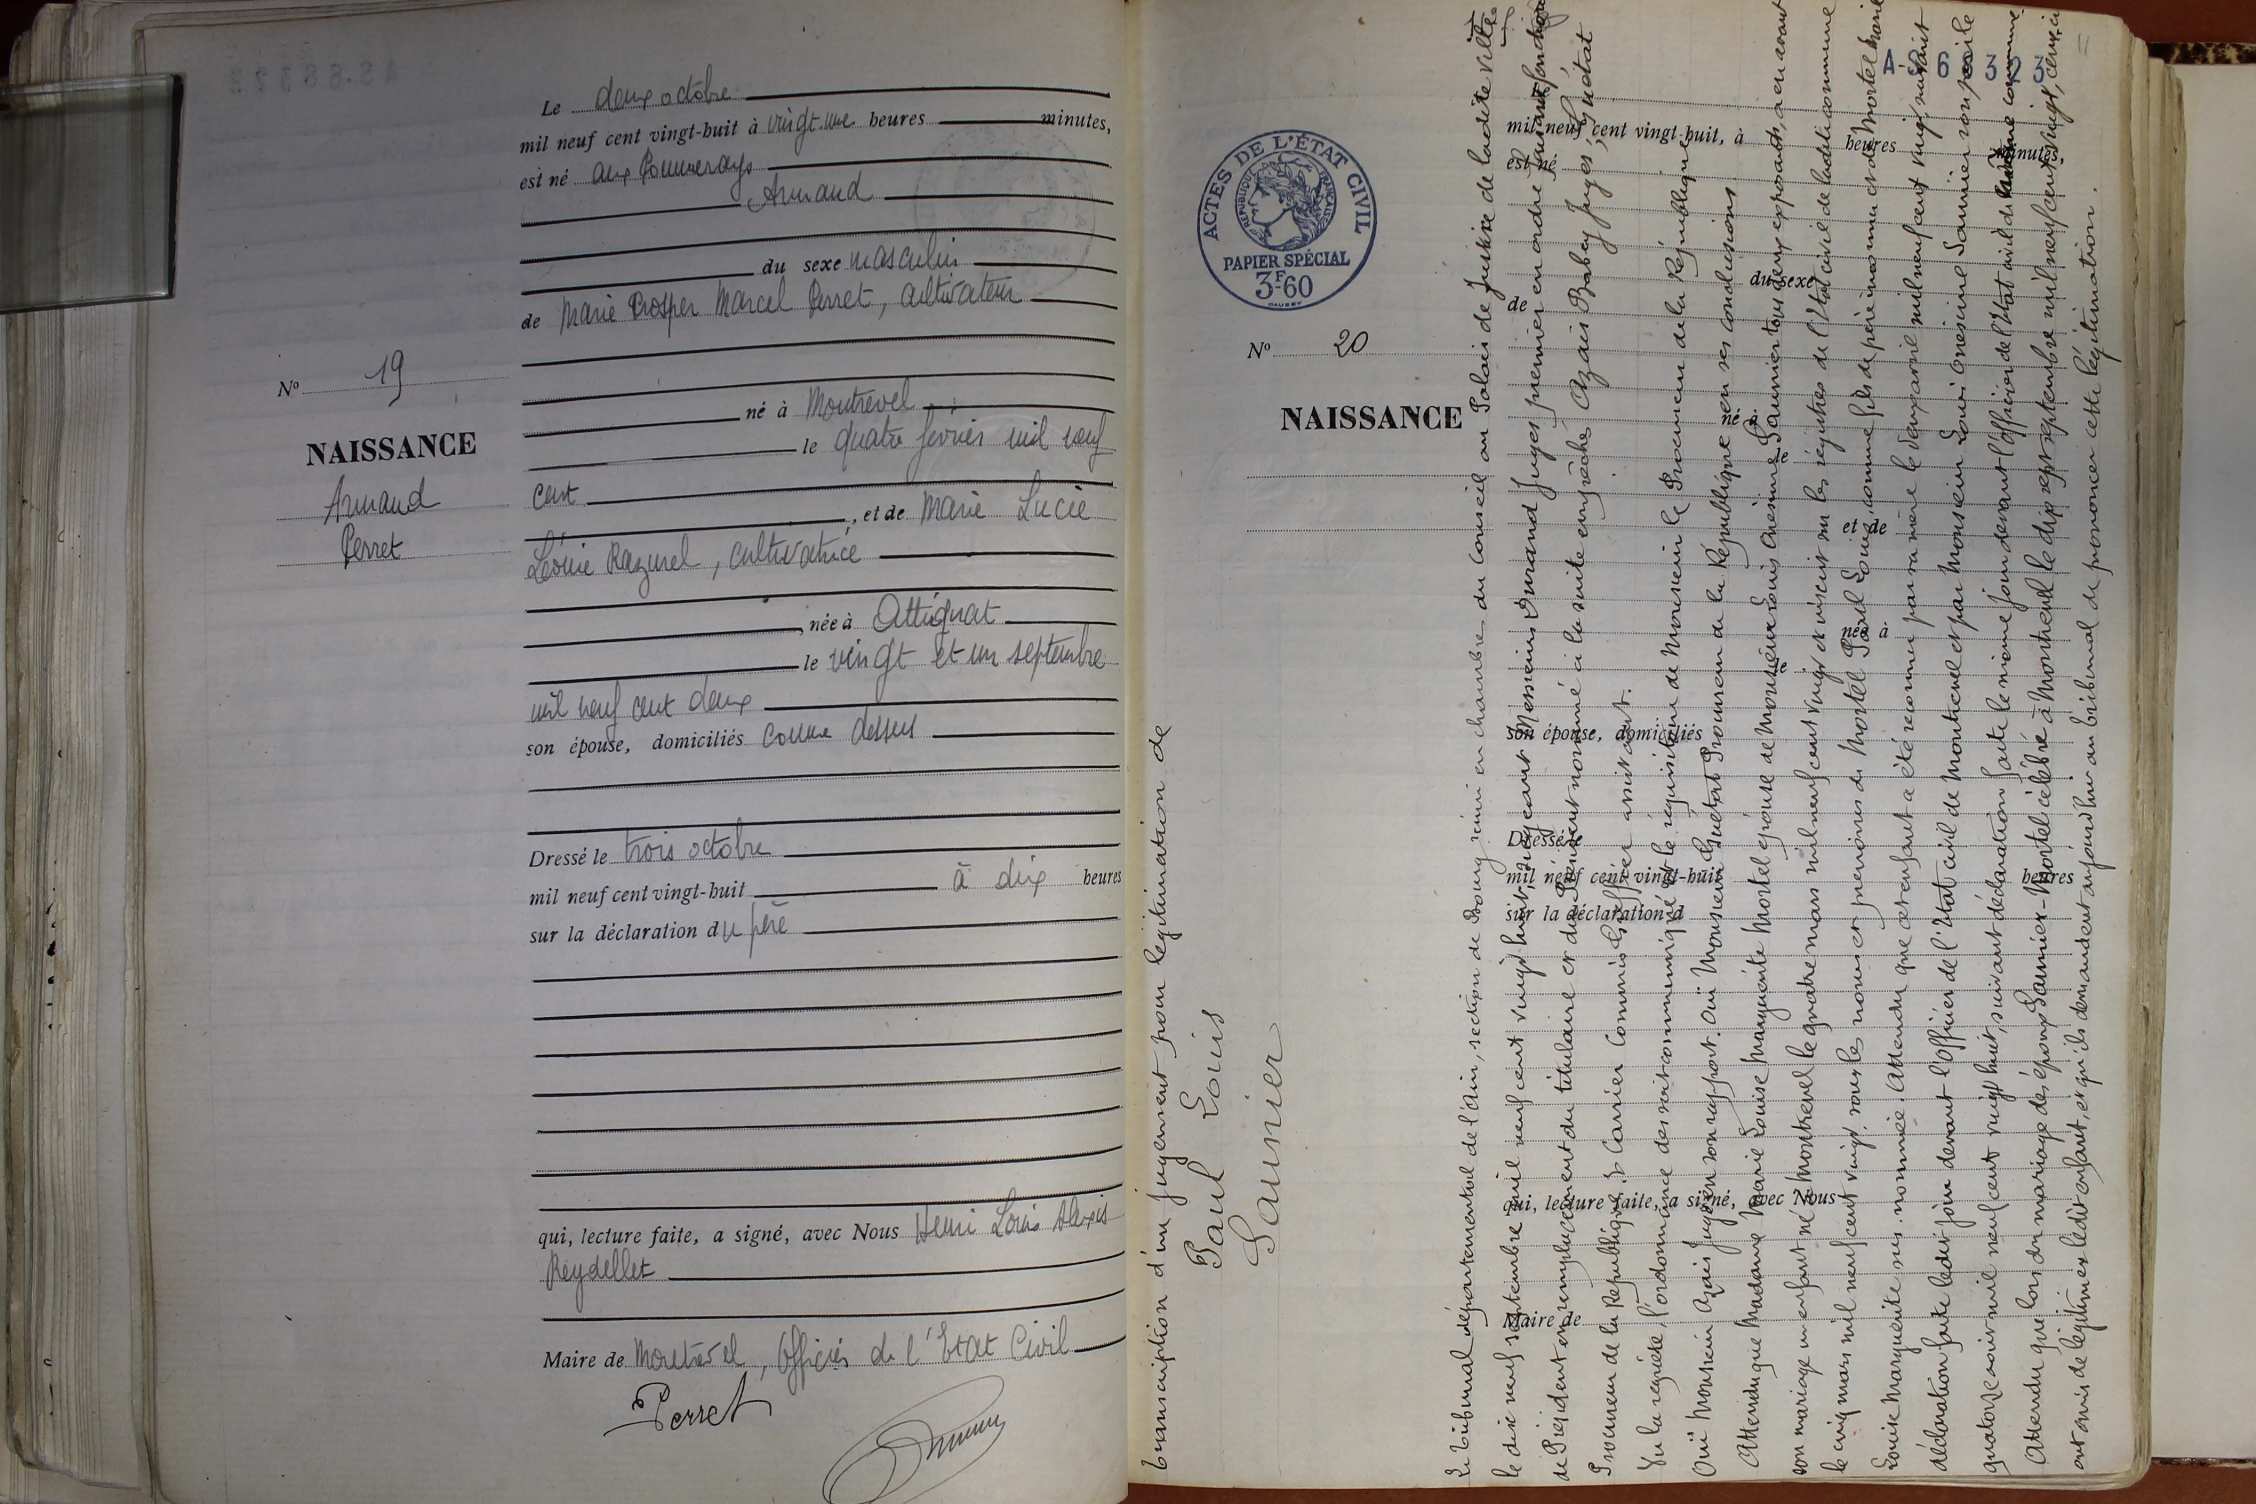 Le deux octobre
mil neuf cent vingt-huit à vingt-une heures minutes,
est né aux Pommerays
Armand
du sexe masculin
de Marie Prosper Marcel Perret, cultivateur
né à Montrevel
le quatre février mil neuf
cent
, et de Marie Lucie
Léonie Razurel, cultivatrice
, née à Attignat
le vingt et un septembre
mil neuf cent deux
son épouse, domiciliés comme dessus
Dressé le trois octobre
mil neuf cent vingt-huit à dix heures
sur la déclaration du père
qui, lecture faite, a signé, avec Nous Henri Louis Alexis
Reydellet
Maire de Montrevel, Officier de l'Etat Civil
Perret
Nº 19
NAISSANCE
Armand
Perret
ACTES DE L'ÉTAT CIVIL
RÉPUBLIQUE FRANÇAISE
PAPIER SPÉCIAL
3F60
Nº 20
NAISSANCE
mil neuf cent vingt-huit, à heures minutes,
est né
du sexe
de
né à
le
et de
née à
le
son épouse, domiciliés
Dressé le
mil neuf cent vingt-huit heures
sur la déclaration d
qui, lecture faite, a signé, avec Nous
Maire de
transcription d'un jugement pour légitimation de
Paul Louis
Saunier
Le tribunal départemental de l'Ain, section de Bourg réuni en chambres du conseil au Palais de Justice de ladite ville
le dix neuf septembre mil neuf cent vingt huit, siégeant Messieurs Durand Juges premier en ordre faisant fonction
de Président en remplacement du titulaire et du Président nommé à la suite empêchés Azais Barbey Juges, Guétat
Procureur de la République et Carrier Commis Greffier assistant.
Vu la requête, l'ordonnance de soit communiqué le réquisitoire de Monsieur le Procureur de la République
Ouï Monsieur Azais Juge en son rapport. Ouï Monsieur Guétat Procureur de la République en ses conclusions
Attendu que Madame Marie Louise Marguerite Mortel épouse de Monsieur Louis Onésime Saunier tous deux exposants, a eu avant
son mariage un enfant né à Montrevel le quatre mars mil neuf cent vingt et inscrit sur les registres de l'Etat civil de ladite commune
le cinq mars mil neuf cent vingt, sous les noms et prénoms de Mortel Paul Louis, comme fils de père inconnu et de Mortel Marie
Louise Marguerite sus-nommée. Attendu que cet enfant a été reconnu par sa mère le vingt avril mil neuf cent vingt, suivant
déclaration faite ledit jour devant l'officier de l'Etat civil de Montrevel et par Monsieur Louis Onésime Saunier son père le
quatorze août mil neuf cent vingt huit, suivant déclaration faite le même jour devant l'officier de l'Etat civil de la même commune
Attendu que lors du mariage des époux Saunier-Mortel célébré à Montrevel le dix sept septembre mil neuf cent vingt, ceux-ci
ont omis de légitimer ledit enfant, et qu'ils demandent aujourd'hui au tribunal de prononcer cette légitimation.